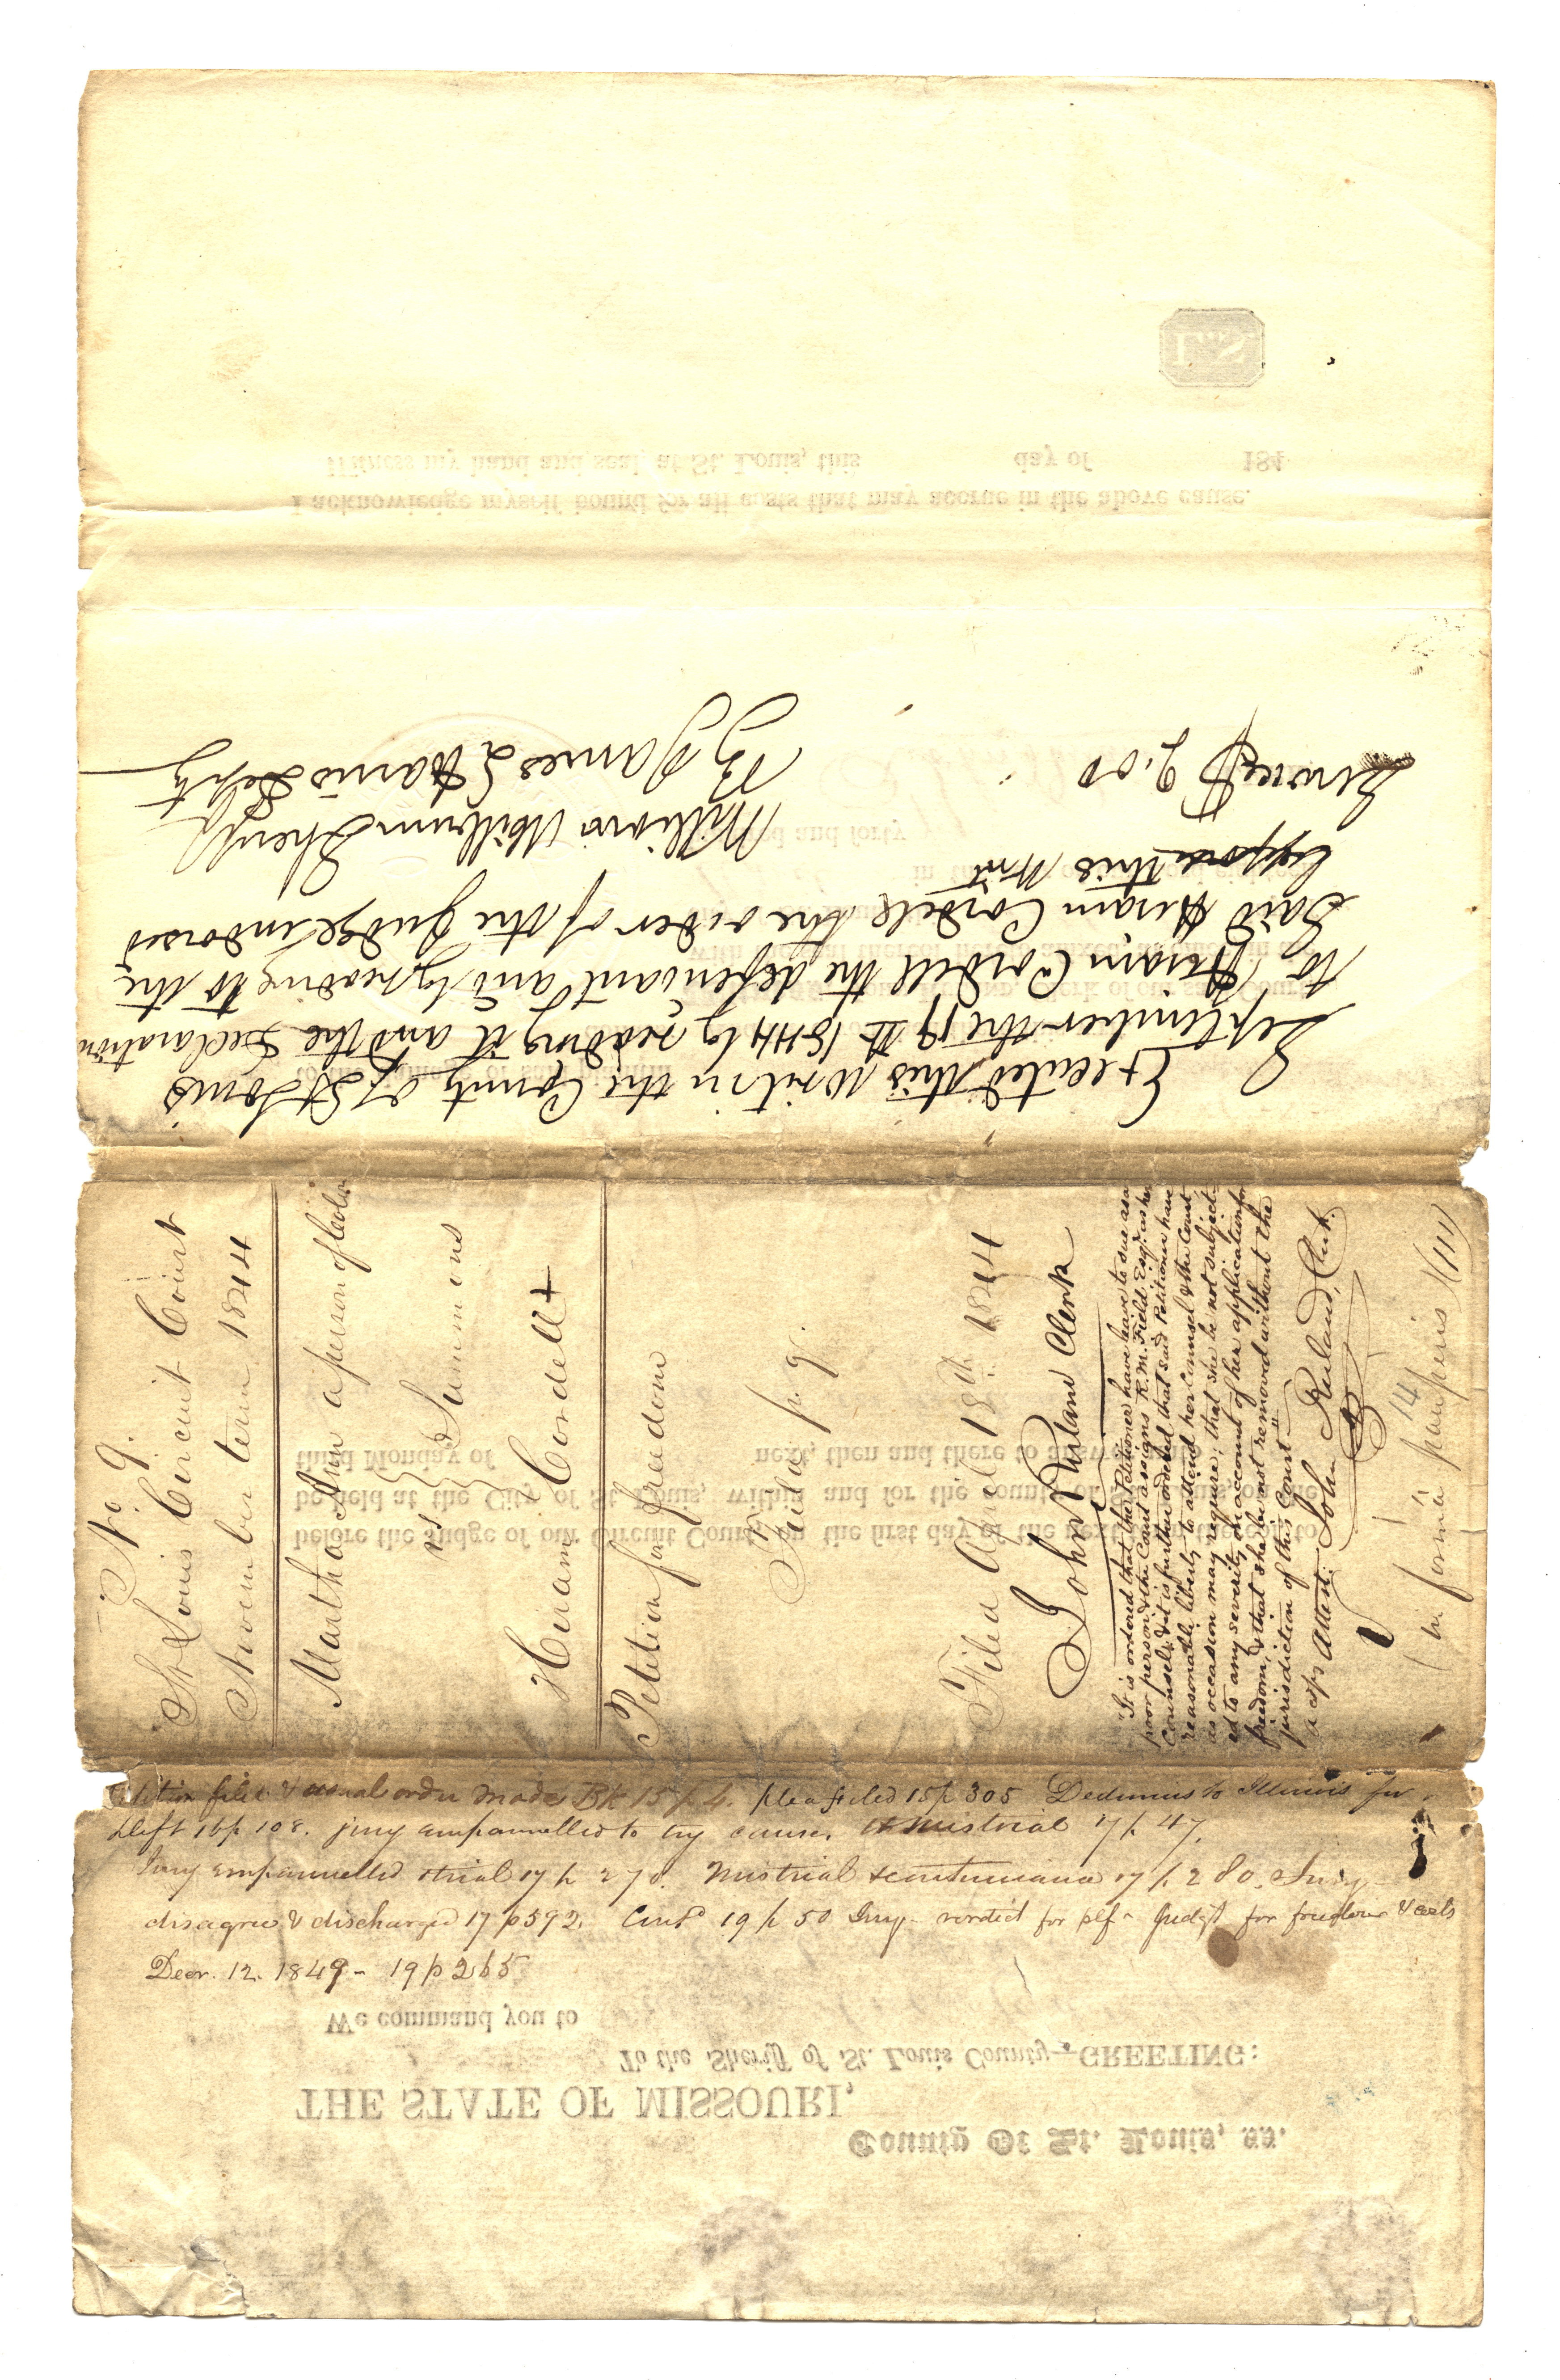 Executed this writ in the County of St Louis
September the 19th 1844 by reading it and the Declaration
to Hiram Cordell the defendant and by reading to the
Said Hiram Cordell the order of the Judge indorsed
upon this Writ
Service $ 2.00
William Milburn Sheriff
By James L Harris Depty
No 9.
St Louis Circuit Court
November term 1844
Martha Ann a person of color
vs } Summons
Hiram Cordell +
Petition for freedom
Filed April 18th 1844
John Ruland Clerk
"It is ordered that the Petitioner have leave to sue as a
poor person & the Court assigns R. M. Field Esq. as her
counsel, & it is further ordered that said Petitioner have
reasonable liberty to attend her counsel & the Court
as occasion may require; that she be not subject-
ed to any severity on account of her application for
freedom, & that she be not removed without the
jurisdiction of this Court"
Attest: John Ruland, Clerk.
14
(in forma pauperis)
Petition filed & usual order made Bk 15 p 4. plea filed 15 p 305 Dedimus to Illinois for
Deft 16 p 108. jury empannelled to try cause, & mistrial 17 p 47.
Jury empannelled & trial 17 p 278. Mistrial & continuance 17 p 280. Jury
disagree & discharged 17 p 592. Contd 19 p 50 Jury - verdict for plf - Judgt for freedom & costs
Decr. 12. 1849 - 19 p 265
County of St. Louis, ss.
THE STATE OF MISSOURI,
To the Sheriff of St. Louis County—GREETING:
We command you to
before the Judge of our Circuit Court, on the first day of the next term thereof, to
be held at the City of St. Louis, within and for the county of St. Louis, on the
third Monday of next, then and there to answer
I acknowledge myself bound for all costs that may accrue in the above cause.
Witness my hand and seal, at St. Louis, this day of 184